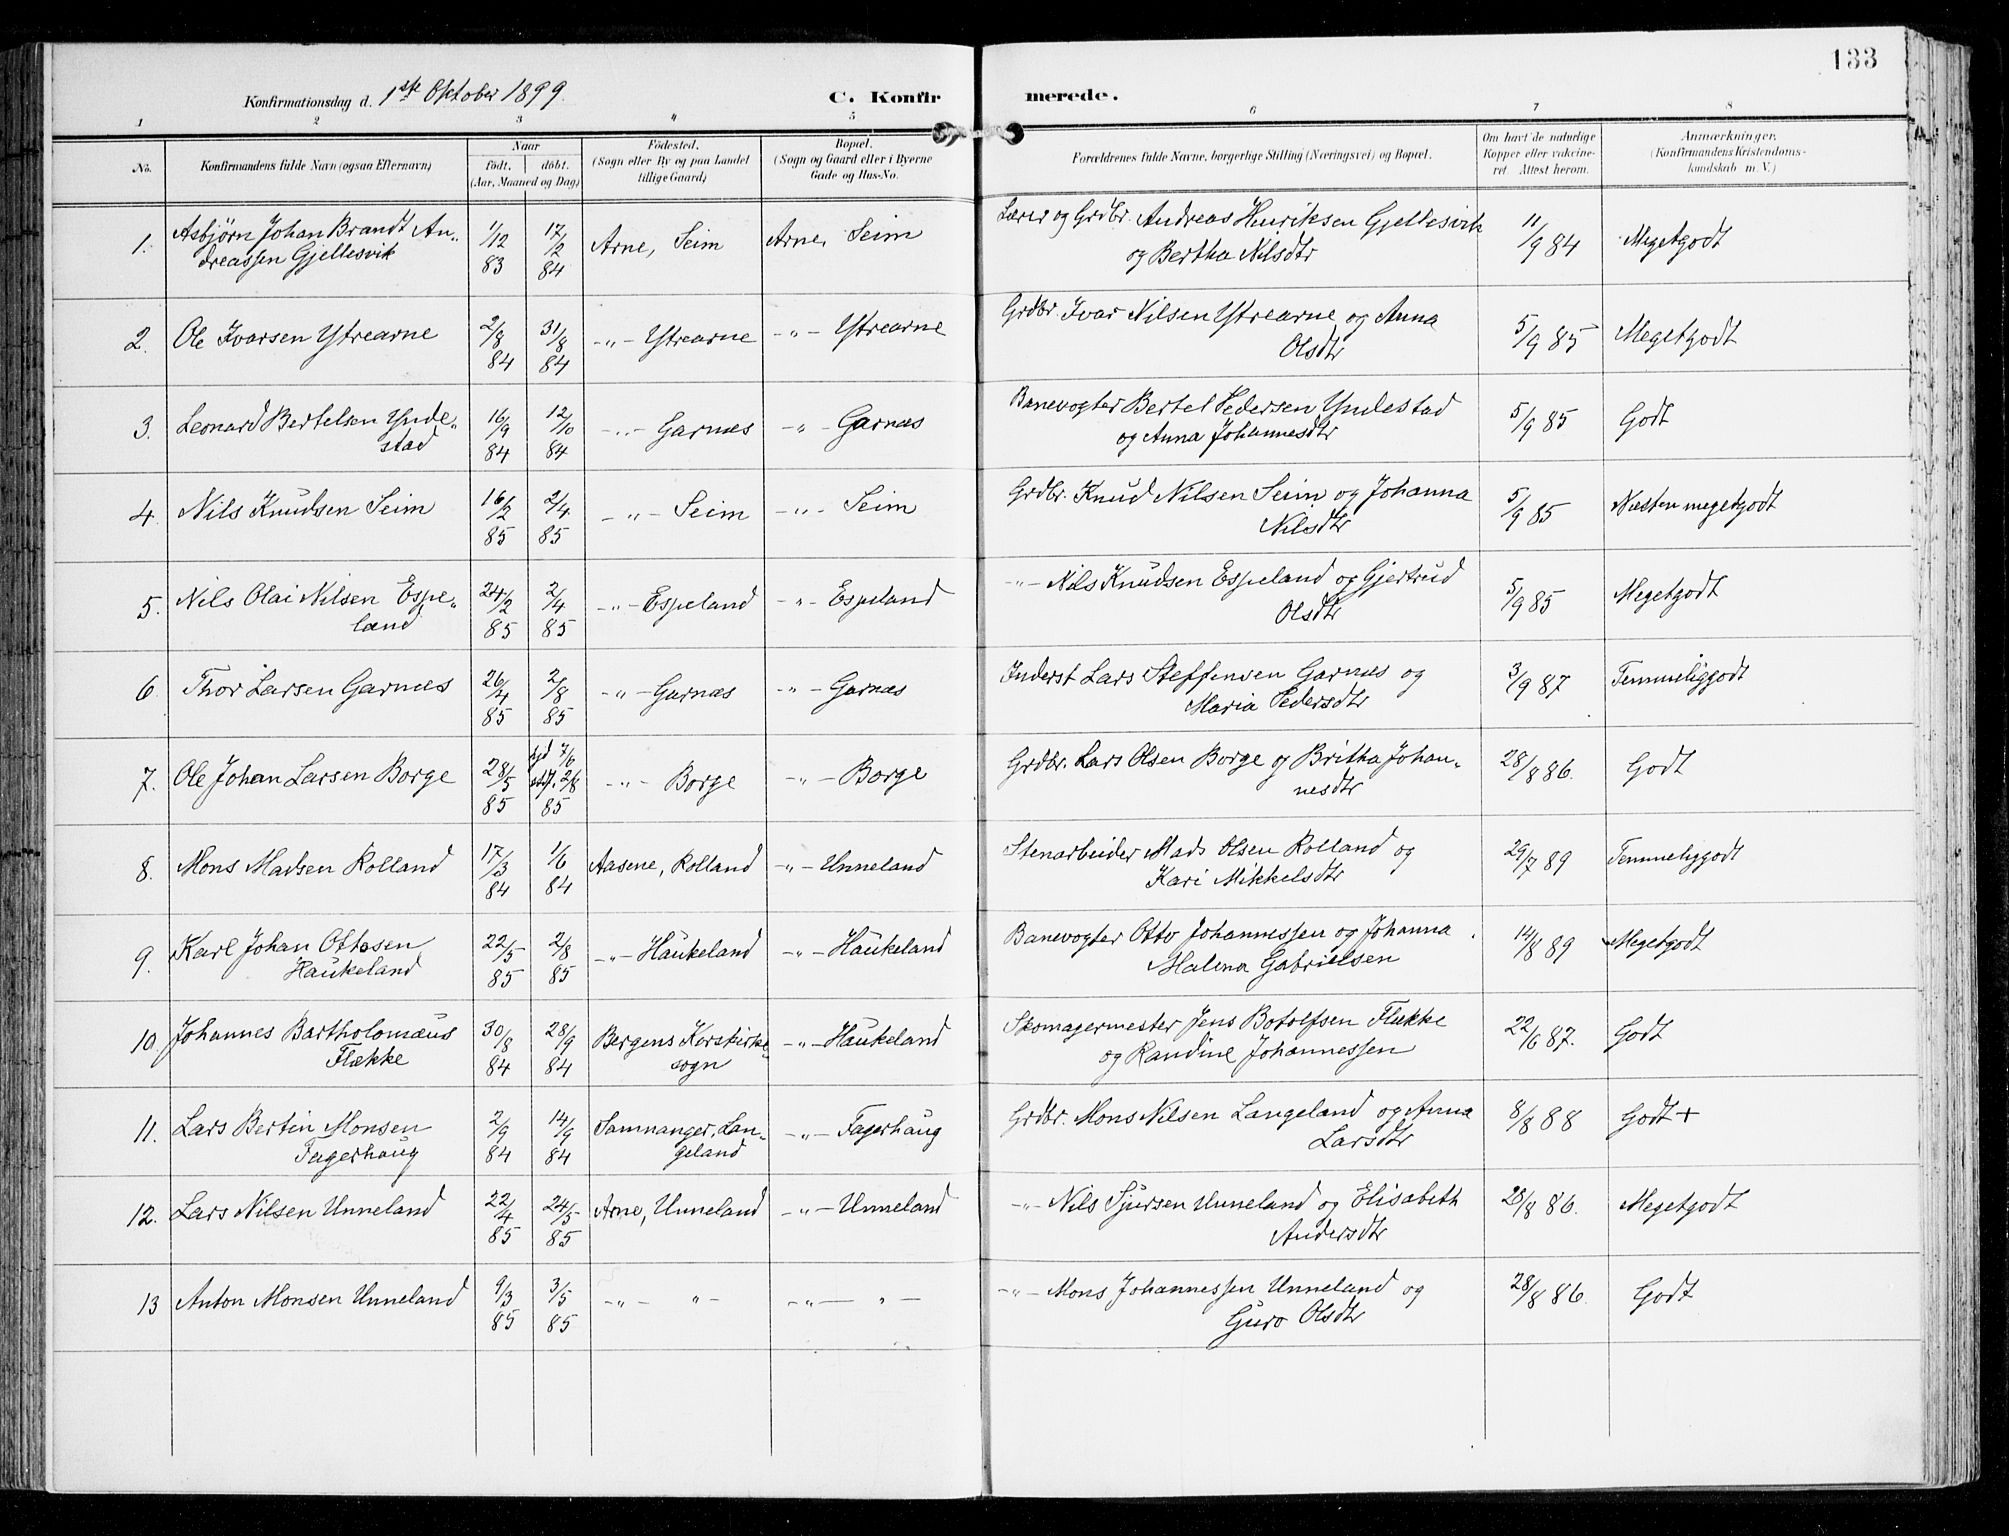 133
Konfirmationsdag d. 1ste Oktober 1899.
C. Konfir merede.
1 2 3 4 5 6 7 8
No.
Konfirmandens fulde Navn (ogsaa Efternavn)
Naar
födt. döbt.
(Aar, Maaned og Dag)
Födested.
(Sogn eller By og paa Landet
tillige Gaard)
Bopæl.
(Sogn og Gaard eller i Byerne
Gade og Hus-No.
Forældrenes fulde Navne, borgerlige Stilling (Næringsvei) og Bopæl.
Om havt de naturlige
Kopper eller vakcine-
ret. Attest herom.
Anmærkninger.
(Konfirmandens Kristendoms-
kundskab m. V.)
1. Asbjörn Johan Brandt An„ 1/12 17/2 Arne, Seim Arne, Seim Lærer og Grdbr. Andreas Henriksen Gjellesvik 11/9 84 Megetgodt
dreassen Gjellesvik 83 84 og Bertha Nilsdtr
2. Ole Ivarsen Ytrearne 2/8 31/8 -„- Ytrearne -„- Ytrearne Grdbr. Ivar Nilsen Ytrearne og Anna 5/9 85 Megetgodt
84 84 Olsdtr
3. Leonard Bertelsen Ynde„ 16/9 12/10 -„- Garnæs -„- Garnæs Banevogter Bertel Pedersen Yndestad 5/9 85 Godt
stad 84 84 og Anna Johannesdtr
4. Nils Knudsen Seim 16/2 2/4 -„- Seim -„- Seim Grdbr. Knud Nilsen Seim og Johanna 5/9 85 Næsten megetgodt
85 85 Nilsdtr
5. Nils Olai Nilsen Espe„ 24/2 2/4 -„- Espeland -„- Espeland -„- Nils Knudsen Espeland og Gjertrud 5/9 85 Megetgodt
land 85 85 Olsdtr
6. Thor Larsen Garnæs 26/4 2/8 -„- Garnæs -„- Garnæs Inderst Lars Steffensen Garnæs og 3/9 87 Temmeliggodt
85 85 Maria Pedersdtr
7. Ole Johan Larsen Borge 28/5 hjd 7/6 -„- Borge -„- Borge Grdbr. Lars Olsen Borge og Britha Johan„ 28/8 86. Godt
85 stdf. 2/8 85 nesdtr
8. Mons Madsen Rolland 17/3 1/6 Aasene, Rolland -„- Unneland Stenarbeider Mads Olsen Rolland og 29/7 89 Temmeliggodt
84 84 Kari Mikkelsdtr
9. Karl Johan Ottosen 22/5 2/8 -„- Haukeland -„- Haukeland Banevogter Otto Johannessen og Johanna 14/8 89 Megetgodt
Haukeland 85 85 Malena Gabrielsen
10. Johannes Bartholomæus 30/8 28/9 Bergens Korskirke -„- Haukeland Skomagermester Jens Botolfsen Flække 22/6 87. Godt
Flække 84 84 sogn og Randine Johannessen
11. Lars Bertin Monsen 2/9 14/9 Samnanger, Lan„ -„- Fagerhaug Grdbr. Mons Nilsen Langeland og Anna 8/8 88 Godt +
Fagerhaug 84 84 geland Larsdtr
12. Lars Nilsen Unneland 22/4 24/5 Arne, Unneland -„- Unneland -„- Nils Sjursen Unneland og Elisabeth 28/8 86. Megetgodt
85 85 Andersdtr
13 Anton Monsen Unneland 9/3 3/5 -„- „ - -„- „ - -„- Mons Johannessen Unneland og 28/8 86. Godt
85 85 Guro Olsdtr